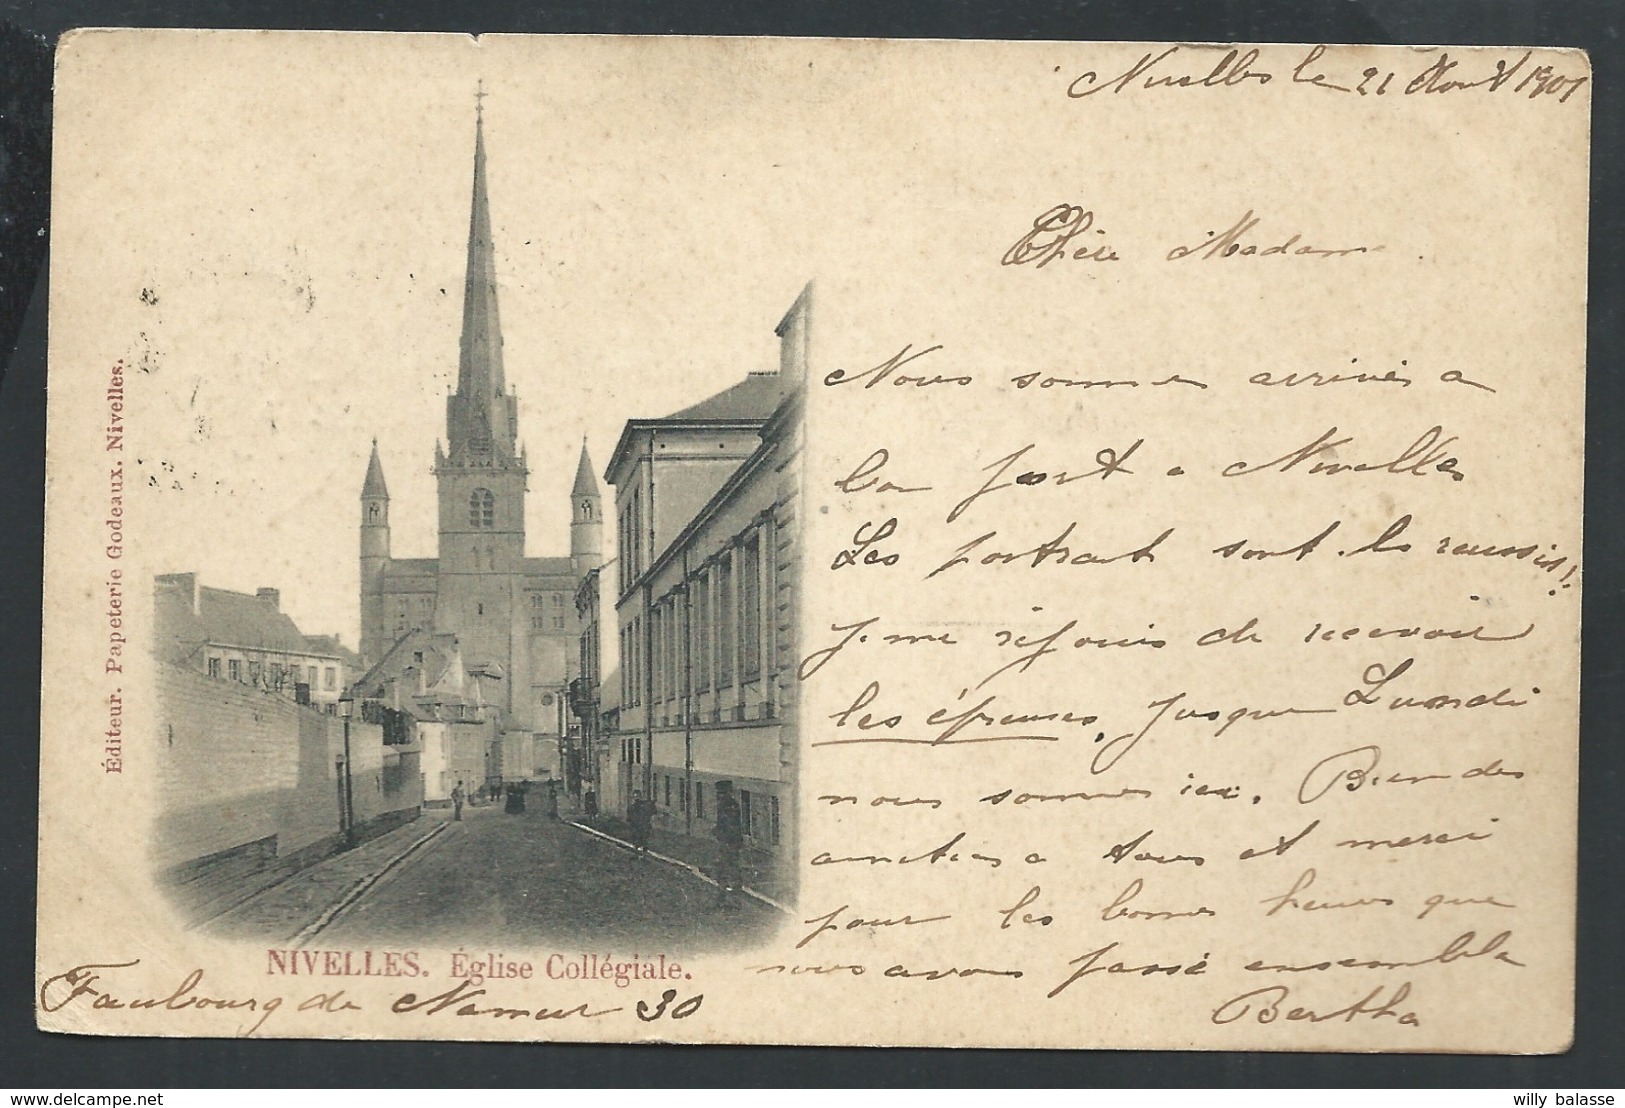 Nivelles le 21 Août 1901
Chère Madame
Nous sommes arrivés a
bon port a Nivelles
Les portrait sont-ls reussis!!
Je me réjouis de recevoir
les épreuves. Jusque Lundi
nous sommes ici. Bien des
amitiés a tous et merci
pour les bonnes heures que
nous avons passé ensemble
Bertha
Faubourg de Namur 30
NIVELLES. Église Collégiale.
Éditeur. Papeterie Godeaux. Nivelles.
delcampe.net
willy balasse